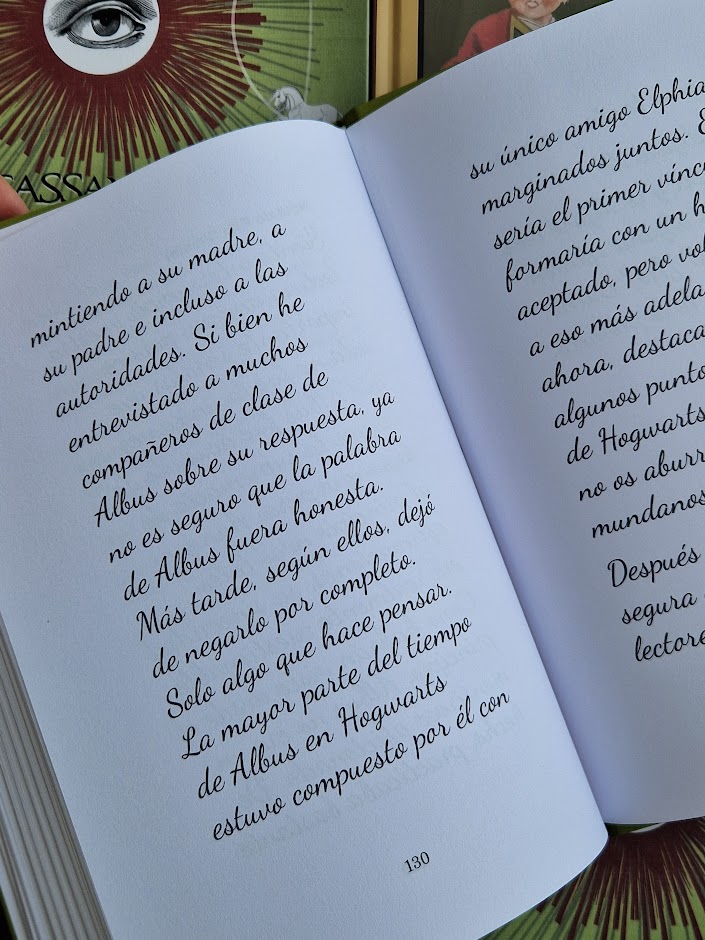 mintiendo a su madre, a
su padre e incluso a las
autoridades. Si bien he
entrevistado a muchos
compañeros de clase de
Albus sobre su respuesta, ya
no es seguro que la palabra
de Albus fuera honesta.
Más tarde, según ellos, dejó
de negarlo por completo.
Solo algo que hace pensar.
La mayor parte del tiempo
de Albus en Hogwarts
estuvo compuesto por él con
130
su único amigo
marginados juntos.
sería el primer
formaría con un
aceptado, pero
a eso más
ahora,
algunos
de Hogwarts
no os
mundanos
Después
segura